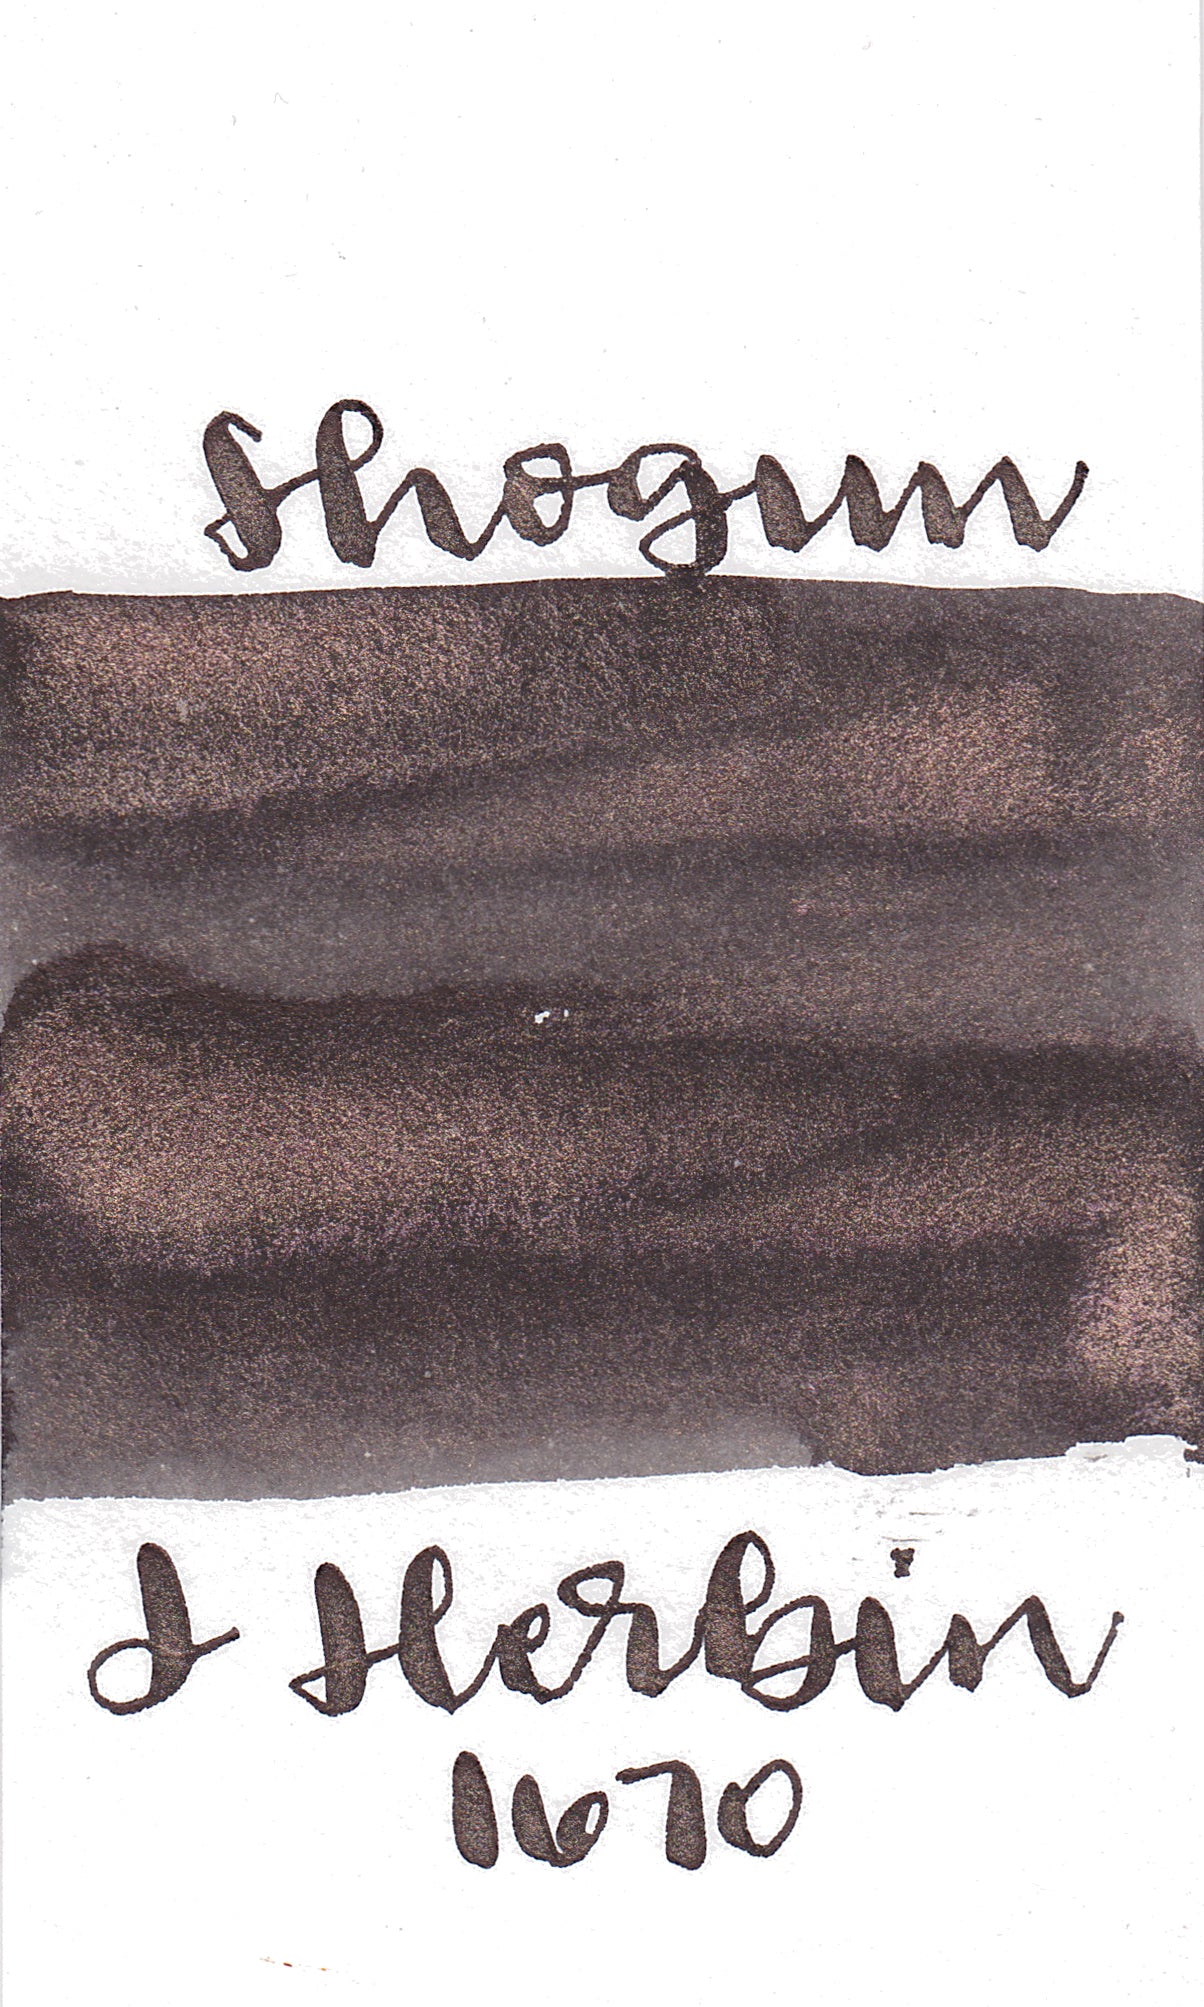 Shogun
J Herbin
1670